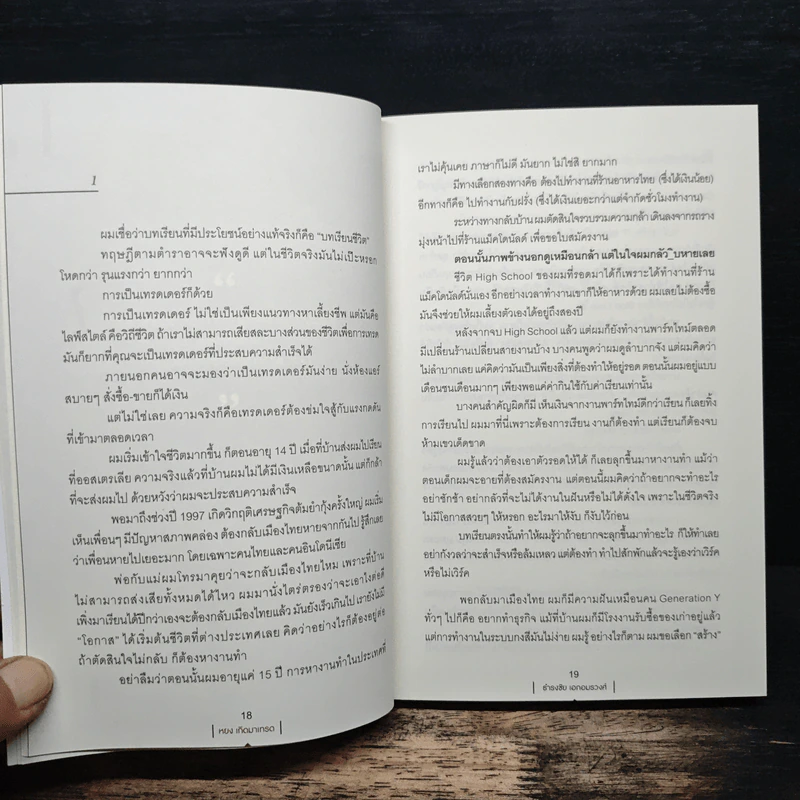 1
ผมเชื่อว่าบทเรียนที่มีประโยชน์อย่างแท้จริงก็คือ "บทเรียนชีวิต"
ทฤษฎีตามตำราอาจจะฟังดูดี แต่ในชีวิตจริงมันไม่เป๊ะหรอก
โหดกว่า รุนแรงกว่า ยากกว่า
การเป็นเทรดเดอร์ก็ด้วย
การเป็นเทรดเดอร์ ไม่ใช่เป็นเพียงแนวทางหาเลี้ยงชีพ แต่มันคือ
ไลฟ์สไตล์ คือวิถีชีวิต ถ้าเราไม่สามารถเสียสละบางส่วนของชีวิตเพื่อการเทรด
มันก็ยากที่คุณจะเป็นเทรดเดอร์ที่ประสบความสำเร็จได้
ภายนอกคนอาจจะมองว่าเป็นเทรดเดอร์มันง่าย นั่งห้องแอร์
สบายๆ สั่งซื้อ-ขายก็ได้เงิน
แต่ไม่ใช่เลย ความจริงก็คือเทรดเดอร์ต้องข่มใจสู้กับแรงกดดัน
ที่เข้ามาตลอดเวลา
ผมเริ่มเข้าใจชีวิตมากขึ้น ก็ตอนอายุ 14 ปี เมื่อที่บ้านส่งผมไปเรียน
ที่ออสเตรเลีย ความจริงแล้วที่บ้านผมไม่ได้มีเงินเหลือขนาดนั้น แต่ก็กล้า
ที่จะส่งผมไป ด้วยหวังว่าผมจะประสบความสำเร็จ
พอมาถึงช่วงปี 1997 เกิดวิกฤติเศรษฐกิจต้มยำกุ้งครั้งใหญ่ ผมเริ่ม
เห็นเพื่อนๆ มีปัญหาสภาพคล่อง ต้องกลับเมืองไทยหายจากกันไป รู้สึกเลย
ว่าเพื่อนหายไปเยอะมาก โดยเฉพาะคนไทยและคนอินโดนีเซีย
พ่อกับแม่ผมโทรมาคุยว่าจะกลับเมืองไทยไหม เพราะที่บ้าน
ไม่สามารถส่งเสียทั้งหมดได้ไหว ผมมานั่งไตร่ตรองว่าจะเอาไงต่อดี
เพิ่งมาเรียนได้ปีกว่าเองจะต้องกลับเมืองไทยแล้ว มันยังเร็วเกินไป เรายังไม่มี
"โอกาส" ได้เริ่มต้นชีวิตที่ต่างประเทศเลย คิดว่าอย่างไรก็ต้องอยู่ต่อ
ถ้าตัดสินใจไม่กลับ ก็ต้องหางานทำ
อย่าลืมว่าตอนนั้นผมอายุแค่ 15 ปี การหางานทำในประเทศที่
18
หยง เกิดมาเทรด
เราไม่คุ้นเคย ภาษาก็ไม่ดี มันยาก ไม่ใช่สิ ยากมาก
มีทางเลือกสองทางคือ ต้องไปทำงานที่ร้านอาหารไทย (ซึ่งได้เงินน้อย)
อีกทางก็คือ ไปทำงานกับฝรั่ง (ซึ่งได้เงินเยอะกว่าแต่จำกัดชั่วโมงทำงาน)
ระหว่างทางกลับบ้าน ผมตัดสินใจรวบรวมความกล้า เดินลงจากรถราง
มุ่งหน้าไปที่ร้านแม็คโดนัลด์ เพื่อขอใบสมัครงาน
ตอนนั้นภาพข้างนอกดูเหมือนกล้า แต่ในใจผมกลัว_บหายเลย
ชีวิต High School ของผมที่รอดมาได้ก็เพราะได้ทำงานที่ร้าน
แม็คโดนัลด์นั่นเอง อีกอย่างเวลาทำงานเขาก็ให้อาหารด้วย ผมเลยไม่ต้องซื้อ
มันจึงช่วยให้ผมเลี้ยงตัวเองได้อยู่ถึงสองปี
หลังจากจบ High School แล้ว แต่ผมก็ยังทำงานพาร์ทไทม์ตลอด
มีเปลี่ยนร้านเปลี่ยนสายงานบ้าง บางคนพูดว่าผมดูลำบากจัง แต่ผมคิดว่า
ไม่ลำบากเลย แค่คิดว่ามันเป็นเพียงสิ่งที่ต้องทำให้อยู่รอด ตอนนั้นผมอยู่แบบ
เดือนชนเดือนมากๆ เพียงพอแค่ค่ากินใช้กับค่าเรียนเท่านั้น
บางคนสำคัญผิดก็มี เห็นเงินจากงานพาร์ทไทม์ดีกว่าเรียน ก็เลยทิ้ง
การเรียนไป ผมมาที่นี่เพราะต้องการเรียน งานก็ต้องทำ แต่เรียนก็ต้องจบ
ห้ามเขวเด็ดขาด
ผมรู้แล้วว่าต้องเอาตัวรอดให้ได้ ก็เลยลุกขึ้นมาหางานทำ แม้ว่า
ตอนเด็กผมจะอายที่ต้องสมัครงาน แต่ตอนนี้ผมคิดว่าถ้าอยากจะทำอะไร
อย่าชักช้า อย่ากลัวที่จะไม่ได้งานในฝันหรือไม่ได้ดั่งใจ เพราะในชีวิตจริง
ไม่มีโอกาสสวยๆ ให้หรอก อะไรมาให้งับ ก็งับไว้ก่อน
บทเรียนตรงนั้นทำให้ผมรู้ว่าถ้าอยากจะลุกขึ้นมาทำอะไร ก็ให้ทำเลย
อย่ากังวลว่าจะสำเร็จหรือล้มเหลว แต่ต้องทำ ทำไปสักพักแล้วจะรู้เองว่าเวิร์ค
หรือไม่เวิร์ค
พอกลับมาเมืองไทย ผมก็มีความฝันเหมือนคน Generation Y
ทั่วๆ ไปก็คือ อยากทำธุรกิจ แม้ที่บ้านผมก็มีโรงงานรับซื้อของเก่าอยู่แล้ว
แต่การทำงานในระบบกงสีมันไม่ง่าย ผมรู้ อย่างไรก็ตาม ผมขอเลือก "สร้าง"
19
ธำรงชัย เอกอมรวงศ์